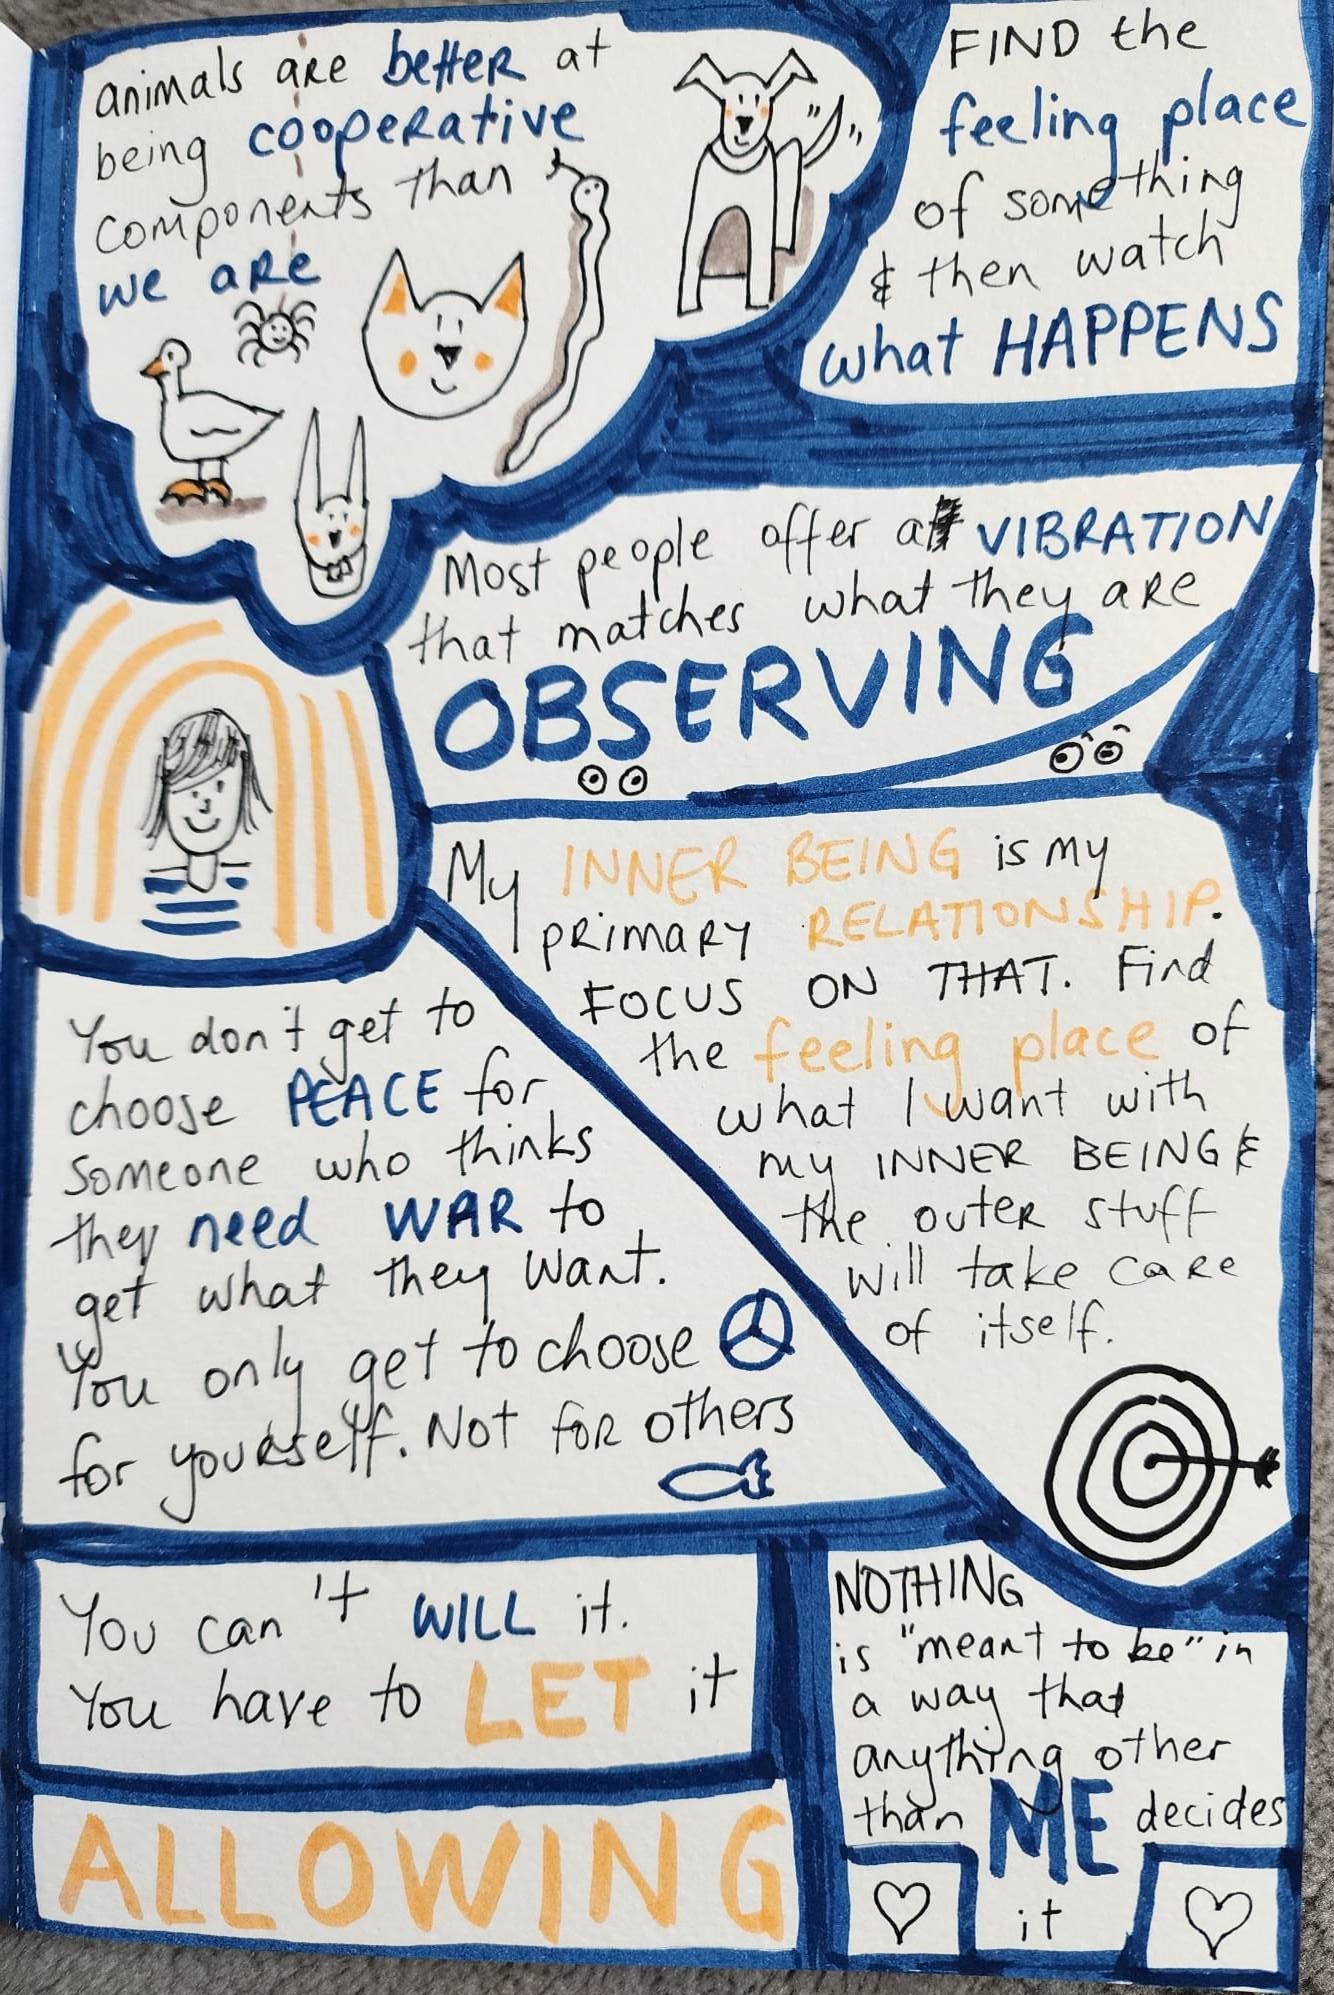 animals are better at
being cooperative
components than
we are
FIND the
feeling place
of something
& then watch
what HAPPENS
Most people offer a VIBRATION
that matches what they are
OBSERVING
My INNER BEING is my
primary RELATIONSHIP.
FOCUS ON THAT. Find
the feeling place of
what I want with
my INNER BEING &
the outer stuff
will take care
of itself.
You don't get to
choose PEACE for
someone who thinks
they need WAR to
get what they want.
You only get to choose
for yourself. Not for others
You can't WILL it.
You have to LET it
ALLOWING
NOTHING
is "meant to be" in
a way that
anything other
than ME decides
it